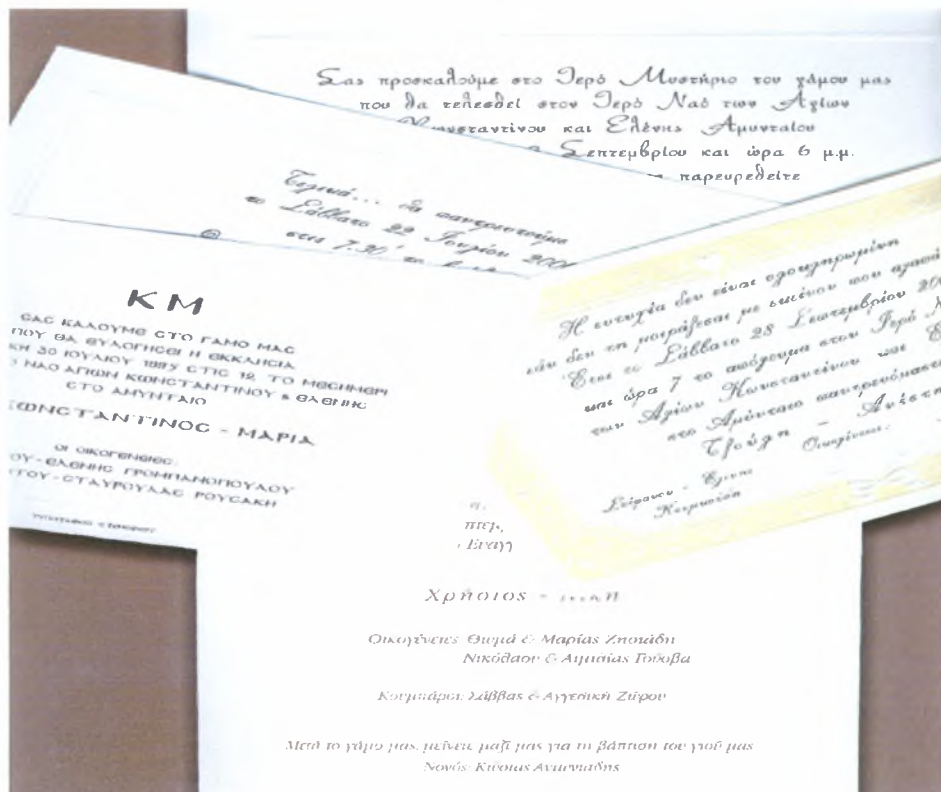 Σας προσκαλούμε στο Ιερό Μυστήριο του γάμου μας
που θα τελεσθεί στον Ιερό Ναό των Αγίων
Κωνσταντίνου και Ελένης Αμυνταίου
Σεπτεμβρίου και ώρα 6 μ.μ.
παρευρεθείτε
Τελικά... θα παντρευτούμε
το Σάββατο 22 Ιουλίου 200
στις 7.30' το
ΚΜ
CΑC ΚΑΛΟΥΜΕ CΤΟ ΓΑΜΟ ΜΑC
ΠΟΥ ΘΑ ΕΥΛΟΓΗCΕΙ Η ΕΚΚΛΗCΙΑ
ΚΗ 30 ΙΟΥΛΙΟΥ 1995 CΤΙC 12 ΤΟ ΜΕCΗΜΕΡΙ
Ο ΝΑΟ ΑΓΙΩΝ ΚΩΝCΤΑΝΤΙΝΟΥ & ΕΛΕΝΗC
CΤΟ ΑΜΥΝΤΑΙΟ
ΚΩΝCΤΑΝΤΙΝΟC - ΜΑΡΙΑ
ΟΙ ΟΙΚΟΓΕΝΕΙΕC:
ΟΥ - ΕΛΕΝΗC ΓΡΟΜΠΑΝΟΠΟΥΛΟΥ
ΤΟΥ - CΤΑΥΡΟΥΛΑC ΡΟΥCΑΚΗ
Η ευτυχία δεν είναι ολοκληρωμένη
εάν δεν τη μοιράζεσαι με εκείνον που αγαπά
Έτσι το Σάββατο 28 Σεπτεμβρίου 200
και ώρα 7 το απόγευμα στον Ιερό Ν
των Αγίων Κωνσταντίνου και Ε
στο Αμύνταιο παντρευόμαστε
Τζούλη - Ανέστη
Οικογένειες:
Στέφανου - Ελένης
πτερ,
Ευαγγ
Χρήστος -
Οικογένειες: Θωμά & Μαρίας
Νικόλαου & Αιμιλίας Γούσβα
Κουμπάροι: Σάββας & Αγγελική Ζύρου
Μετά το γάμο μας, μείνετε μαζί μας για τη βάπτιση του γιού μας
Νονός: Κώστας